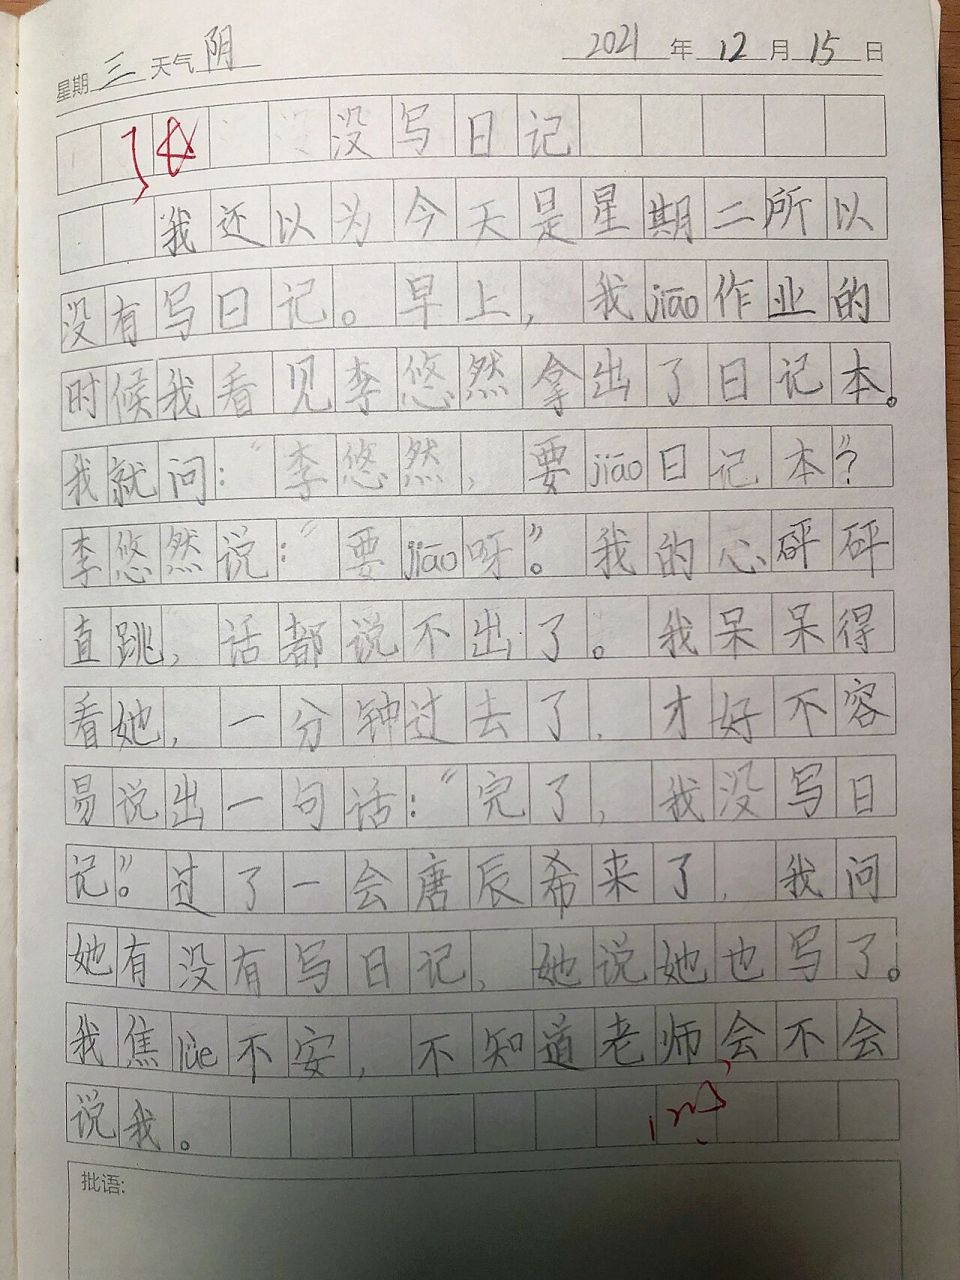 星期 三 天气 阴 2021 年 12 月 15 日
没写日记
我还以为今天是星期二所以
没有写日记。早上，我jiāo作业的
时候我看见李悠然拿出了日记本。
我就问：“李悠然，要jiāo日记本？
李悠然说：“要jiāo呀”。我的心砰砰
直跳，话都说不出了。我呆呆得
看她，一分钟过去了，才好不容
易说出一句话：“完了，我没写日
记”。过了一会唐辰希来了，我问
她有没有写日记，她说她也写了。
我焦lǜe不安，不知道老师会不会
说我。
批语: